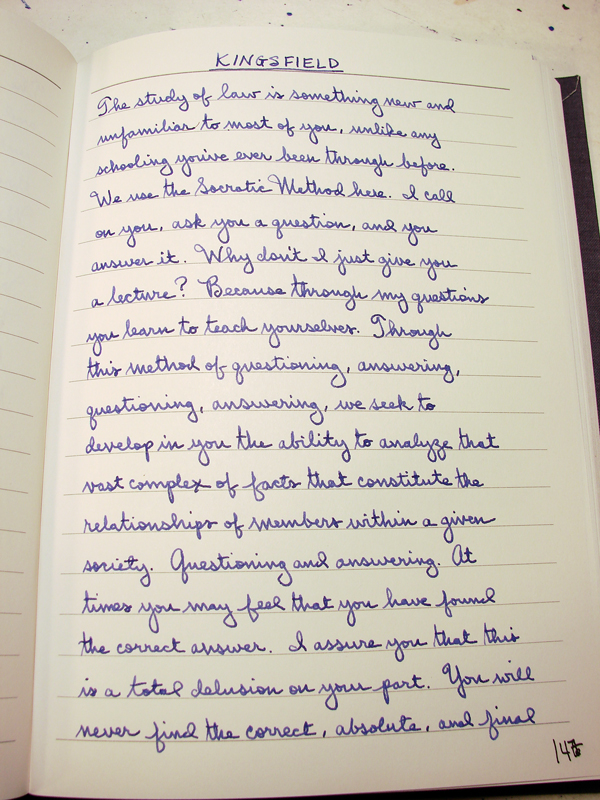 KINGSFIELD
The study of law is something new and
unfamiliar to most of you, unlike any
schooling you've ever been through before.
We use the Socratic Method here. I call
on you, ask you a question, and you
answer it. Why don't I just give you
a lecture? Because through my questions
you learn to teach yourselves. Through
this method of questioning, answering,
questioning, answering, we seek to
develop in you the ability to analyze that
vast complex of facts that constitute the
relationships of members within a given
society. Questioning and answering. At
times you may feel that you have found
the correct answer. I assure you that this
is a total delusion on your part. You will
never find the correct, absolute, and final